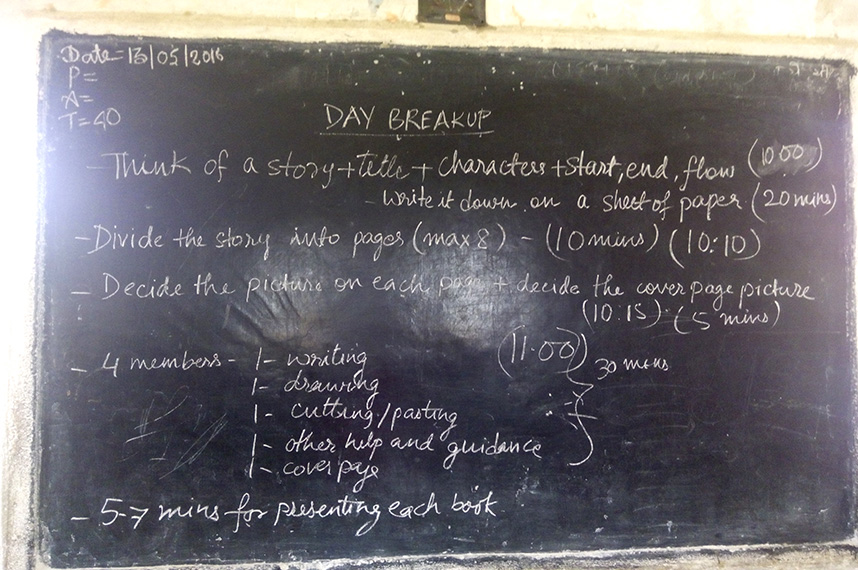 Date=13/05/2016
P=
A=
T=40
DAY BREAKUP
- Think of a story+title+characters+start,end,flow (10.00)
- Write it down on a sheet of paper (20 mins)
- Divide the story into pages (max 8) - (10 mins) (10:10)
- Decide the picture on each page + decide the cover page picture
(10:15) (5 mins)
- 4 members - 1- writing (11.00) 30 mins
1- drawing
1- cutting/pasting
1- other help and guidance
1- cover page
- 5-7 mins for presenting each book